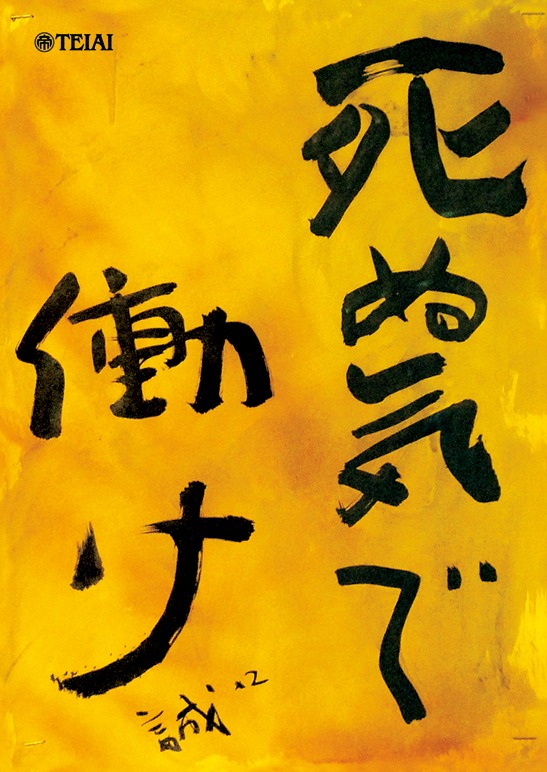 帝 TEIAI
死ぬ気で
働け
誠×2